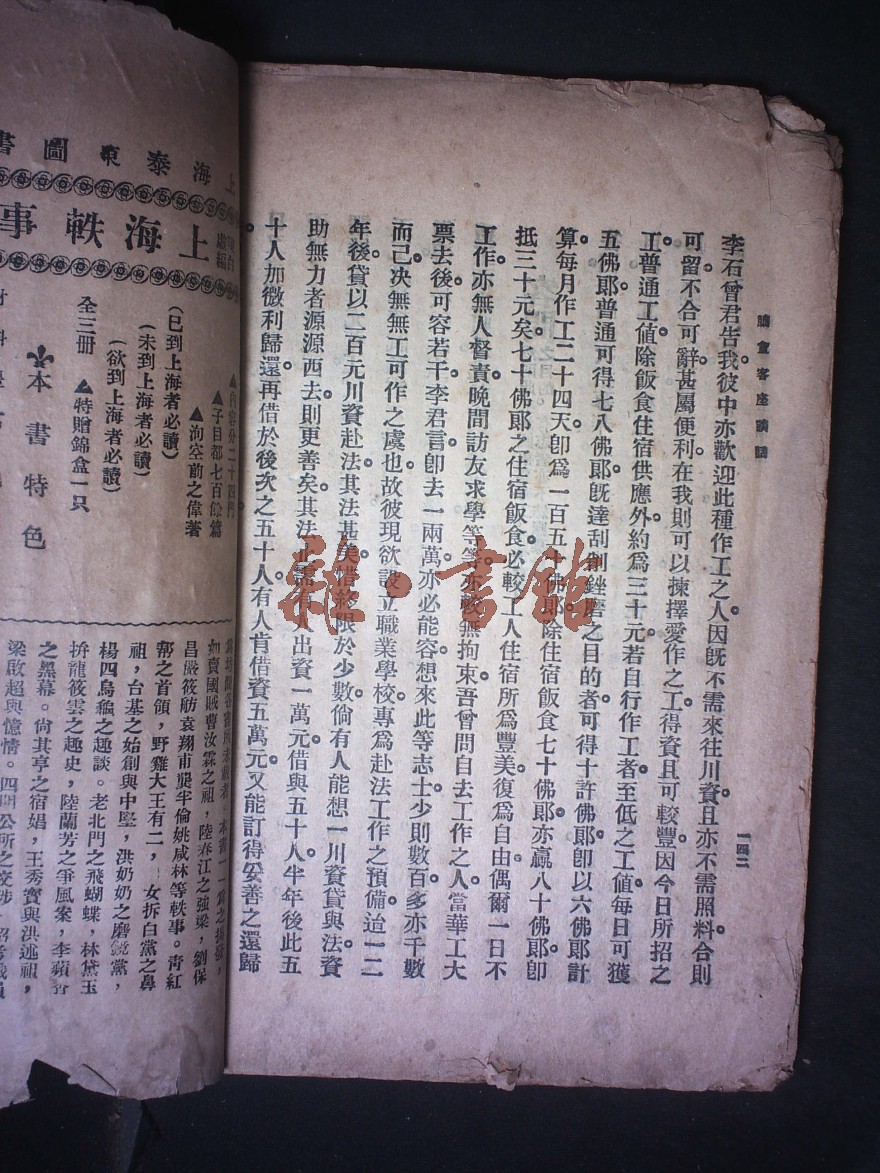 朏盦客座談話
一四二
李石曾君告我彼中亦歡迎此種作工之人因旣不需來往川資且亦不需照料合則
可留不合可辭甚屬便利在我則可以揀擇愛作之工得資且可較豐因今日所招之
工普通工值除飯食住宿供應外約爲三十元若自行作工者至低之工値每日可獲
五佛郞普通可得七八佛郞旣達刮劀銼磨之目的者可得十許佛郞卽以六佛郞計
算每月作工二十四天卽爲一百五十佛郞除住宿飯食七十佛郞亦贏八十佛郞卽
抵三十元矣七十佛郞之住宿飯食必較工人住宿所爲豐美復爲自由偶爾一日不
工作亦無人督責晚間訪友求學等等亦較無拘束吾曾問自去工作之人當華工大
票去後可容若干李君言卽去一兩萬亦必能容想來此等志士少則數百多亦千數
而已决無無工可作之虞也故彼現欲設立職業學校專爲赴法工作之預備迨一二
年後貸以二百元川資赴法其法甚美惜終限於少數倘有人能想一川資貸與法資
助無力者源源西去則更善矣其法止需有人出資一萬元借與五十人半年後此五
十人加微利歸還再借於後次之五十人有人肯借資五萬元又能訂得妥善之還歸
上海泰東圖書
上海軼事
▲內容分二十四門
▲子目都七百餘篇
▲洵空前之偉著
(已到上海者必讀)
(未到上海者必讀)
(欲到上海者必讀)
全三册 ▲特贈錦盒一只
本書特色
如賣國賊曹汝霖之祖，陸春江之強梁，劉保
昌嚴筱舫袁翔甫龔半倫姚咸林等軼事。靑紅
幫之首領，野雞大王有二，女拆白黨之鼻
祖，台基之始創與中堅，洪奶奶之磨鏡黨，
楊四烏龜之趣談。老北門之飛蝴蝶，林黛玉
拚龍筱雲之趣史，陸蘭芳之爭風案，李蘋香
之黑幕。尙其亨之宿娼，王秀寶與洪述祖，
梁啟超與憶情。四明公所之交涉，